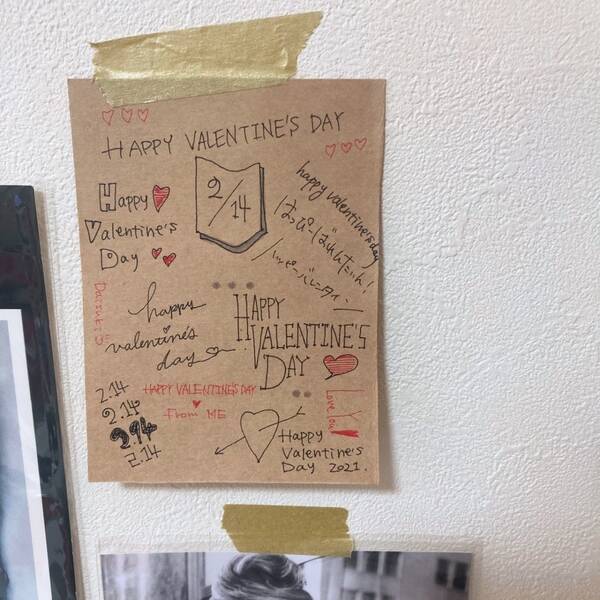 HAPPY VALENTINE'S DAY
2/14
Happy
Valentine's
Day
happy valentine's day
はっぴーばれんたいん!
ハッピーバレンタイン
Daisuki
happy
valentine's
day
HAPPY
VALENTINE'S
DAY
2.14
2.14
2.14
2.14
HAPPY VALENTINE'S DAY
From ME
Love You
Happy
Valentine's
Day 2021.